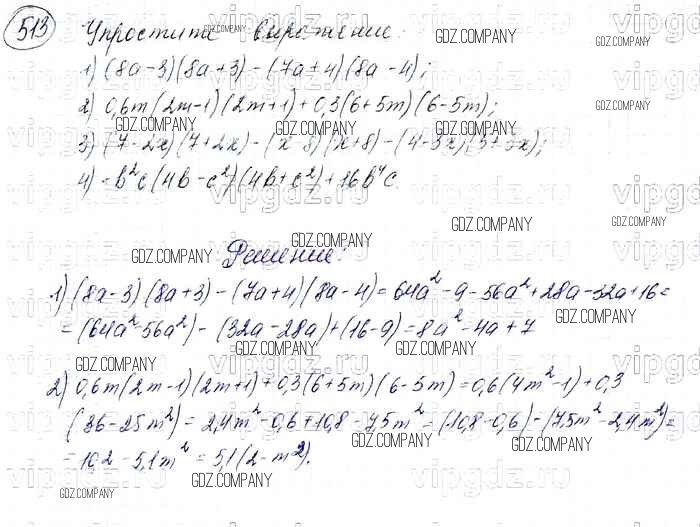 513
Упростите выражение:
1) (8a-3)(8a+3)-(7a+4)(8a-4);
2) 0,6m(2m-1)(2m+1)+0,3(6+5m)(6-5m);
3) (7-2x)(7+2x)-(x-8)(x+8)-(4-3x)(5+3x);
4) -b²c(4b-c²)(4b+c²)+16b⁴c.
Решение:
1) (8a-3)(8a+3)-(7a+4)(8a-4)=64a²-9-56a²+28a-32a+16=
=(64a²-56a²)-(32a-28a)+(16-9)=8a²-4a+7
2) 0,6m(2m-1)(2m+1)+0,3(6+5m)(6-5m)=0,6(4m²-1)+0,3
(36-25m²)=2,4m²-0,6+10,8-7,5m²=(10,8-0,6)-(7,5m²-2,4m²)=
=10,2-5,1m²=5,1(2-m²).